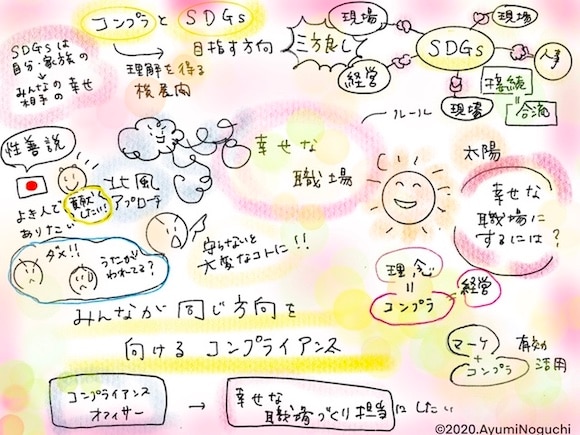 コンプラとSDGs
目指す方向
三方良し
SDGs
現場
現場
経営
人事
現場
接続
=
合流
SDGsは
自分・家族の
↓
みんなの
相手の 幸せ
理解を得る
性善説
よき人で
ありたい
貢献
したい!
北風
アプローチ
幸せな
職場
ルール
太陽
幸せな
職場に
するには?
ダメ!!
うたがわれてる?
守らないと
大変なコトに!!
理念
=
コンプラ
経営
みんなが同じ方向を
向ける コンプライアンス
マーケ
+
コンプラ
有効
活用
コンプライアンス
オフィサー
→
幸せな
職場づくり担当にしたい
©2020.AyumiNoguchi